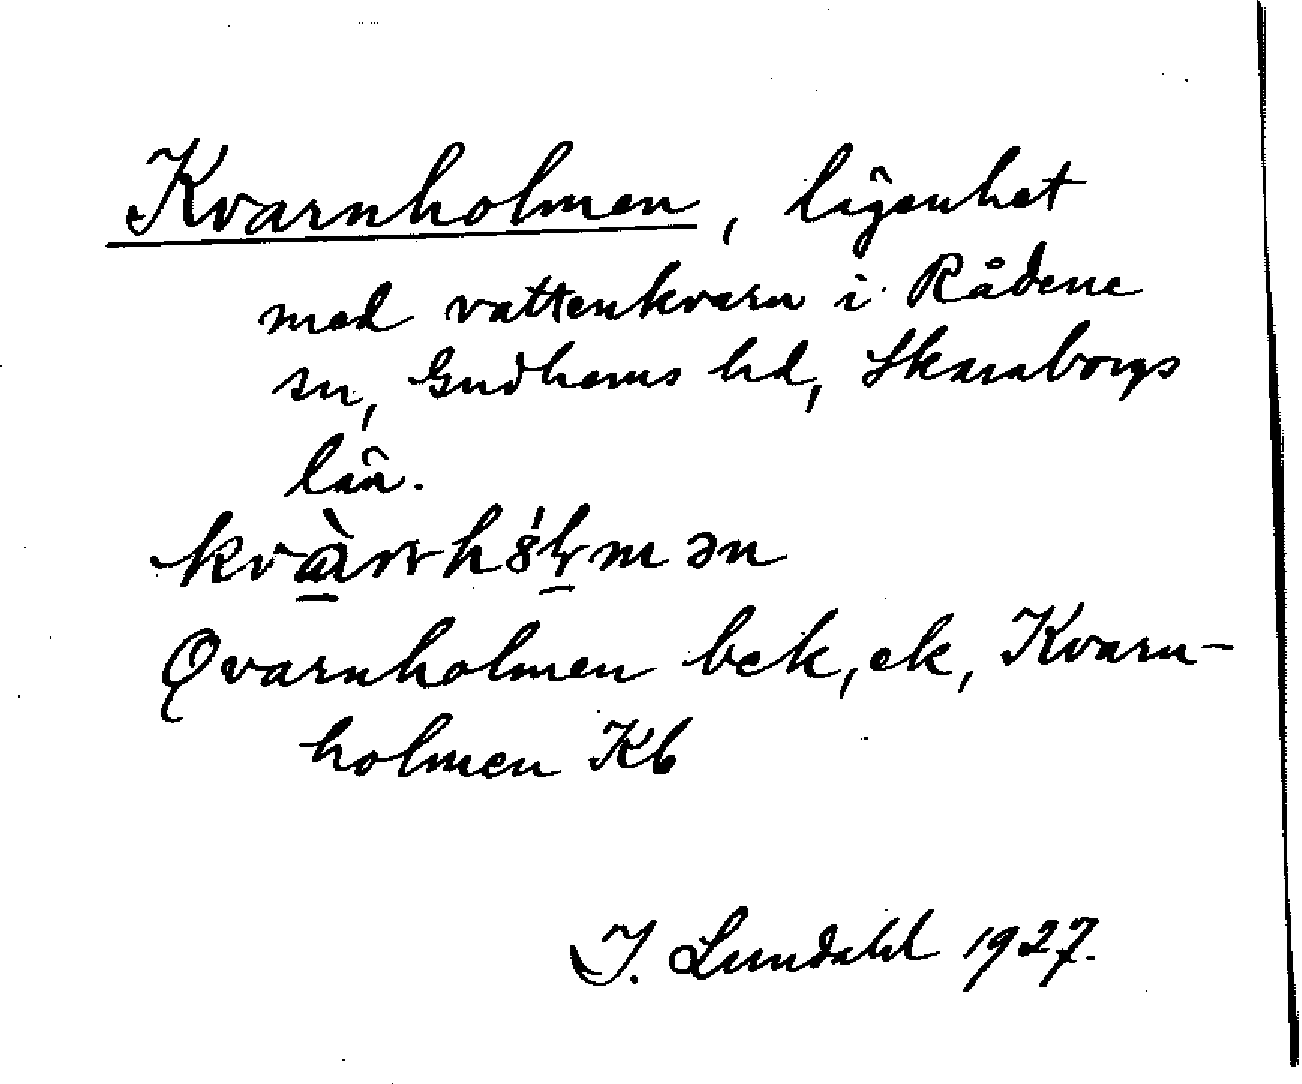 Kvarnholmen, lägenhet
med vattenkvarn i Rådene
sn, Gudhems hd, Skaraborgs
län.
Qvarnholmen bek, ek, Kvarn-
holmen Kb
I. Lundahl 1927.